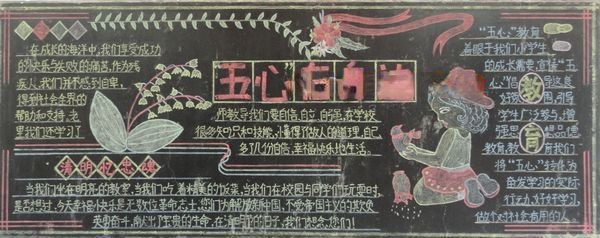 在成长的海洋中，我们享受成功
的快乐与失败的痛苦，作为残
疾人，我们并不感到自卑，
得到社会各界的
帮助和支持，
里我们还学习了
"五心"在身边
老师教导我们要自信，自立，自强，在学校
很多知识和技能，懂得了做人的道理，自己
多了几份自信，幸福快乐地生活。
"五心"教育
着眼于我们小学生
的成长需要，宣传"五
心"
好
学生广泛参与，增
强思想思想品德
教育，教育我们
将"五心"转化为
奋发学习的实际
行动，好好学习，
做个对社会有用的人。
教
育
清明忆忠魂
当我们坐在明亮的教室，当我们吃着精美的饭菜，当我们在校园与同学们玩耍时，
是否想过，今天幸福快乐是无数位革命志士，您们为解放新中国，不受帝国主义的欺负
英勇奋斗，献出了宝贵的生命，在清明的日子，我们想念您们！